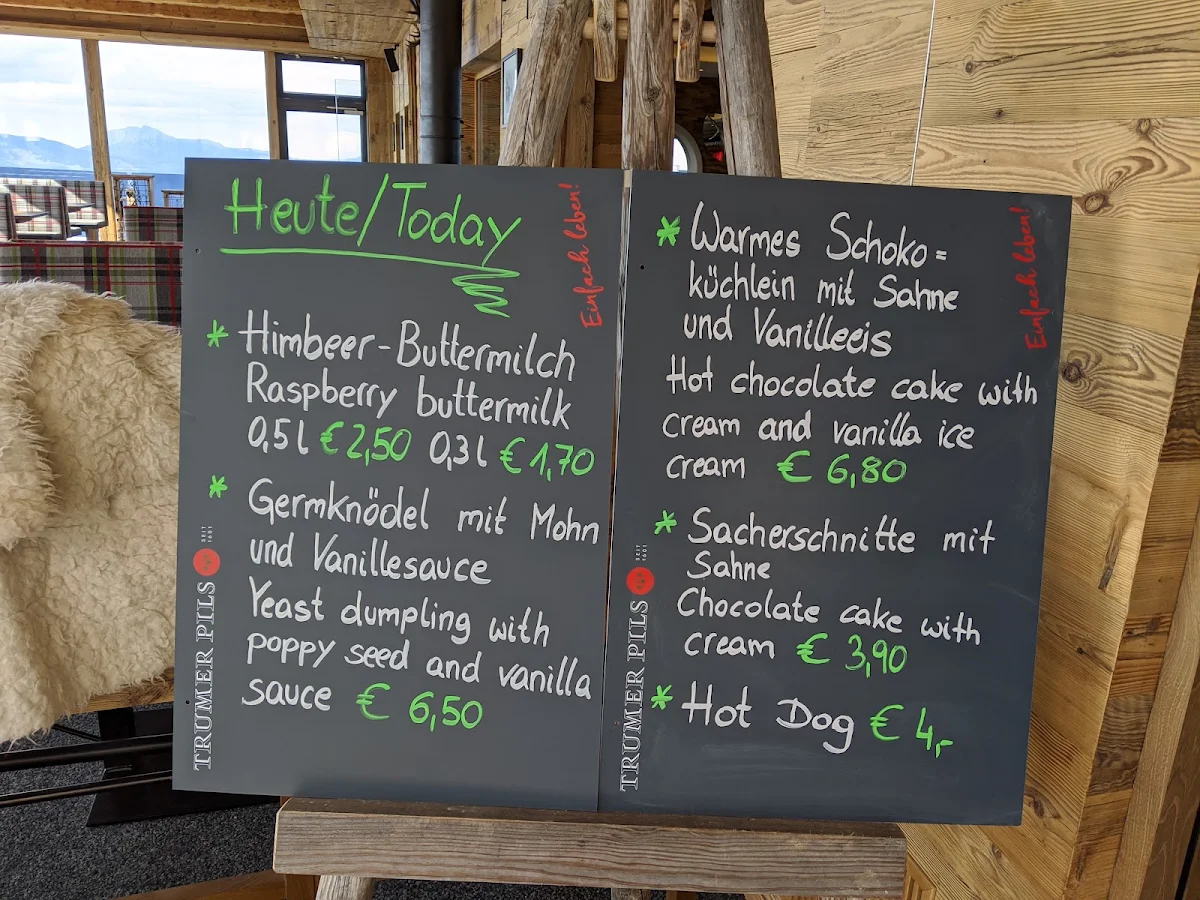 Heute/Today
Einfach leben!
* Himbeer-Buttermilch
Raspberry buttermilk
0,5 l € 2,50 0,3 l € 1,70
* Germknödel mit Mohn
und Vanillesauce
Yeast dumpling with
poppy seed and vanilla
sauce € 6,50
TRUMER PILS
SEIT
1601
* Warmes Schoko=
küchlein mit Sahne
und Vanilleeis
Hot chocolate cake with
cream and vanilla ice
cream € 6,80
* Sacherschnitte mit
Sahne
Chocolate cake with
cream € 3,90
* Hot Dog € 4,-
Einfach leben!
TRUMER PILS
SEIT
1601